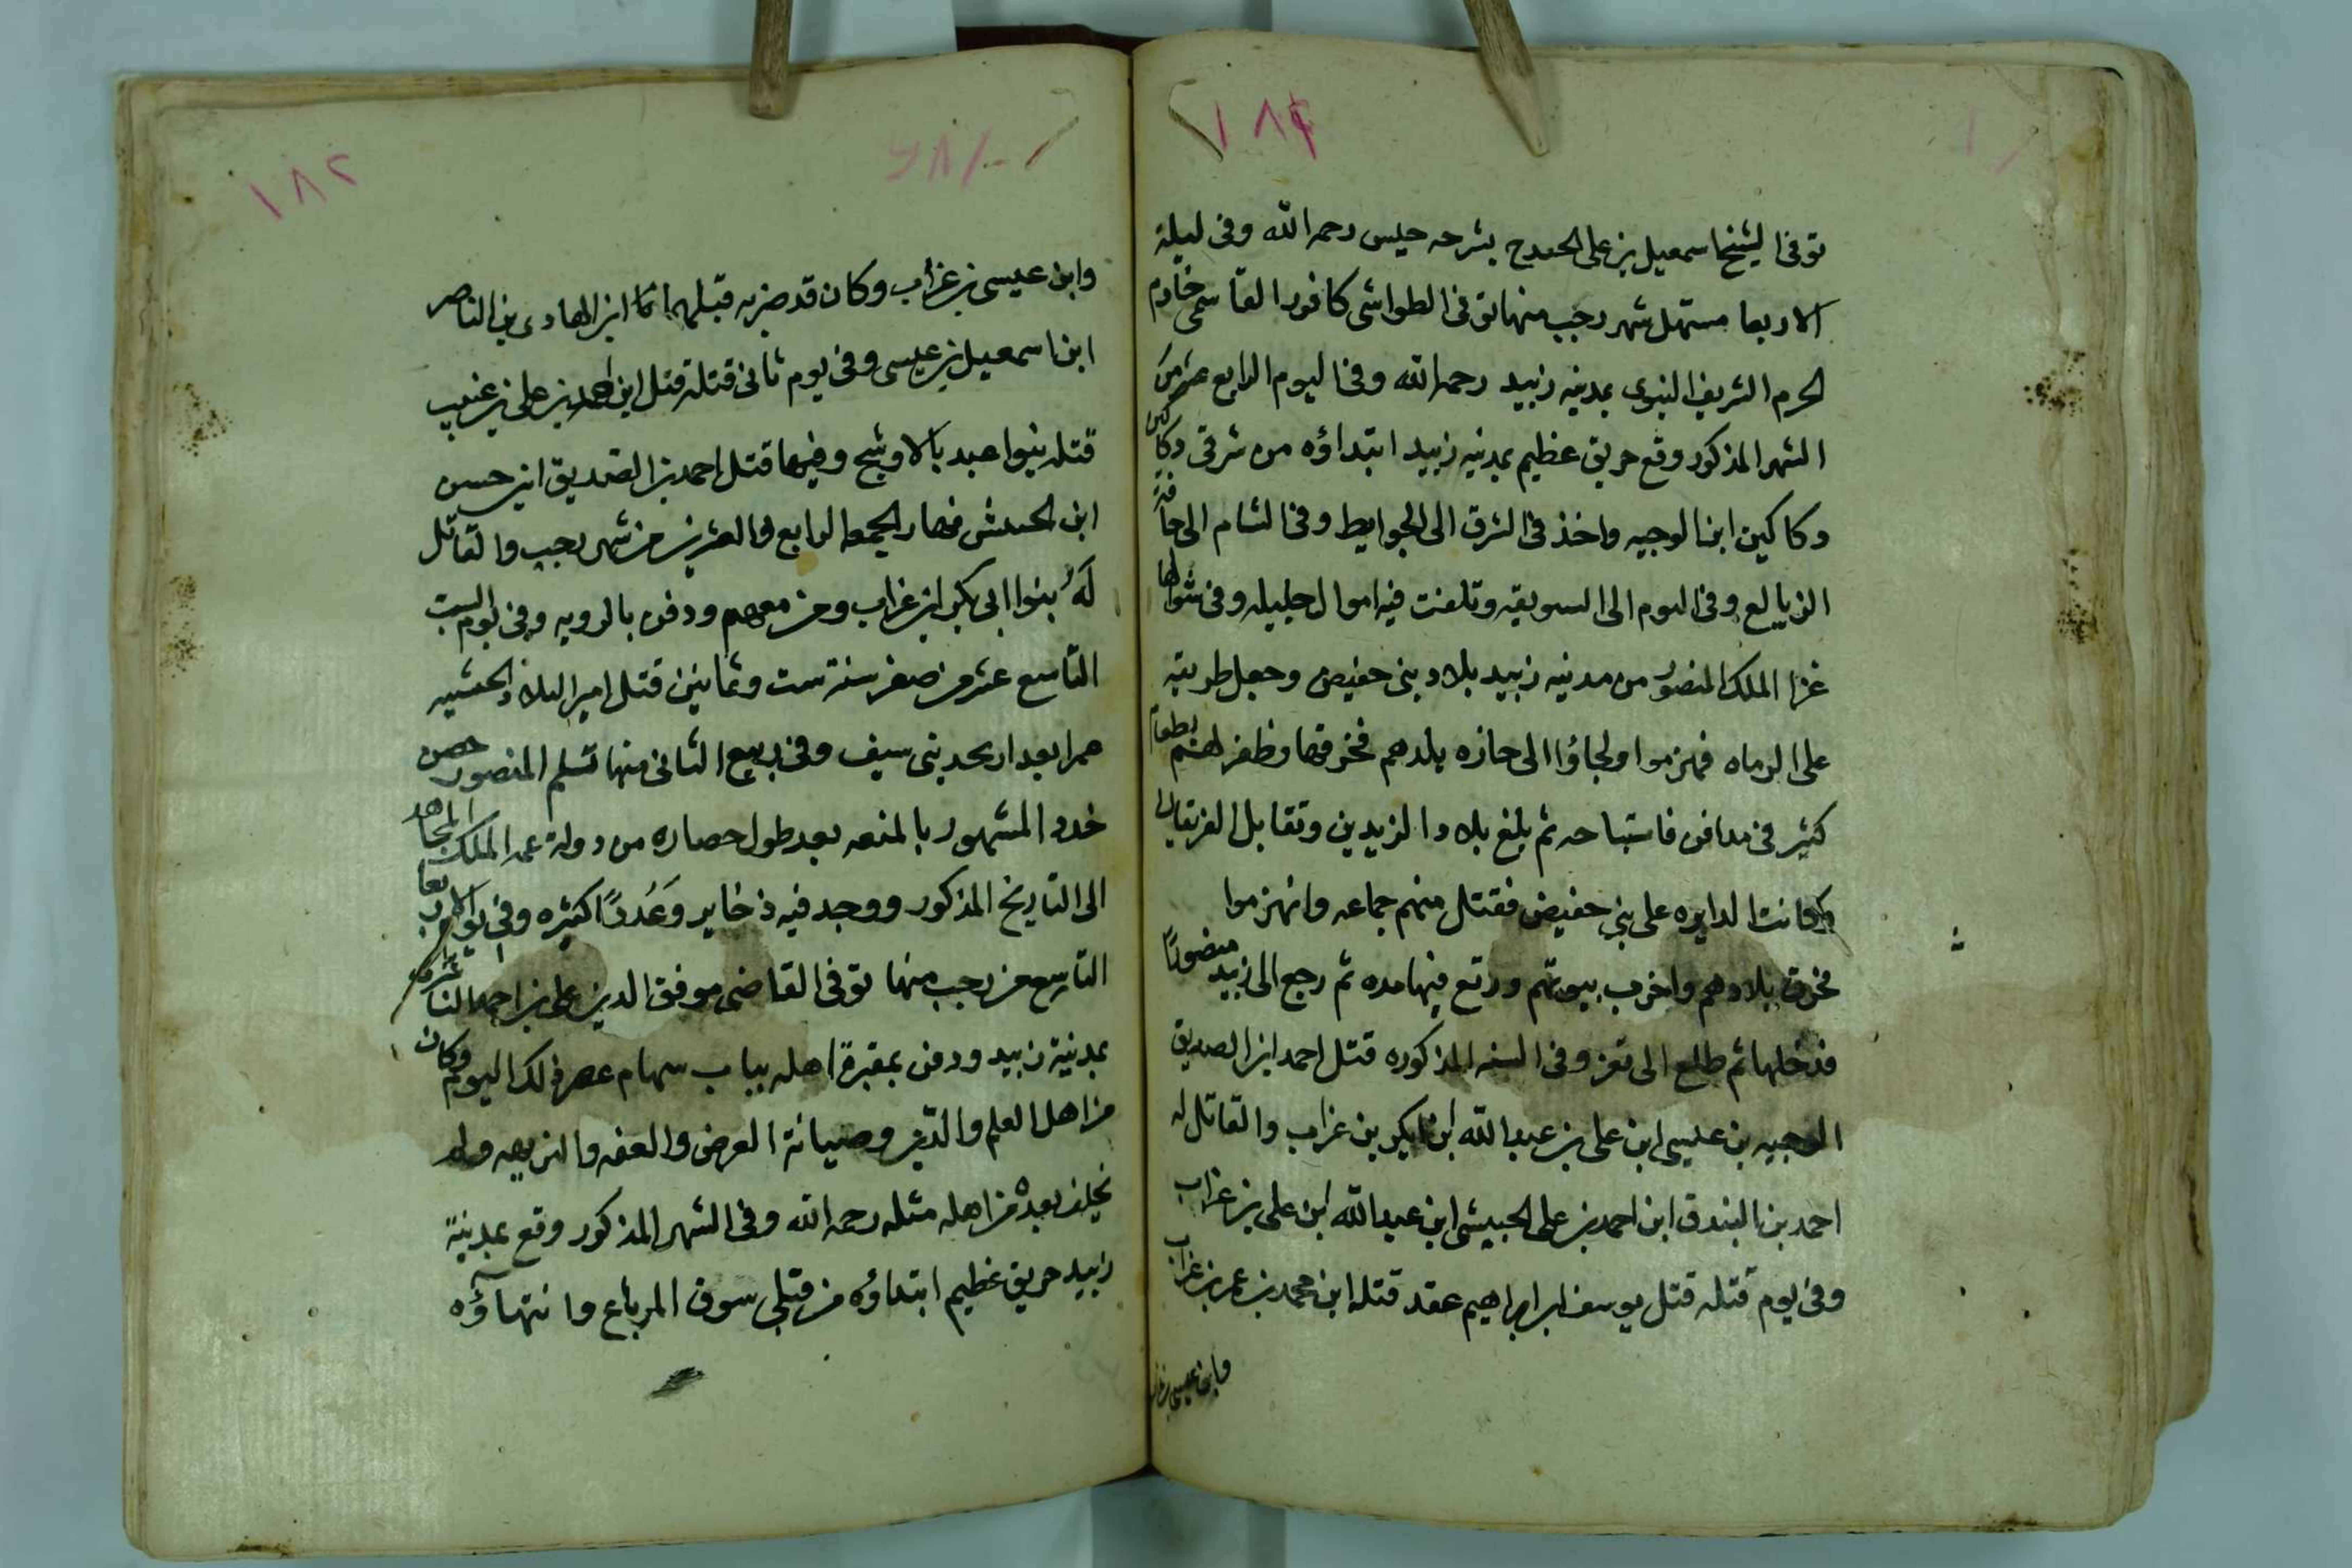 ١٨٢
توفي الشيخ اسمعيل بن على بشرجه حيس رحمه الله وفى ليلة
الاربعا مستهل شهر رجب منها توفى الطواشى كافور القاسمى خادم
الحرم الشريف النبوى بمدينه زبيد رحمه الله وفى اليوم الرابع عشر من
الشهر المذكور وقع حريق عظيم بمدينه زبيد ابتداؤه من شرقى دكاكين
دكاكين ابن الوجيه واخذ فى الشرق الى الجوايط وفى الشام الى حافة
الزيالع وفى اليوم الى السويقه وتلفت فيه اموال جليله وفى شوالها
غزا الملك المنصور من مدينه زبيد بلاد بنى حفيص وجعل طريقه
على الرماه فهزموا ولجاؤا الى حازه بلدهم فخرقها وظفر لهم بطعام
كثير فى مدافن فاستباحه ثم بلغ بلاد الزيديين وتقابل الفريقان
وكانت الدايره على بنى حفيض فقتل منهم جماعه وانهزموا
فخرق بلادهم واخرب بيوتهم ورتع فيها مده ثم رجع الى زبيد منصورًا
فدخلها ثم طلع الى تعز وفى السنه المذكوره قتل احمد ابن الصديق
الوجيه بن عيسى ابن على بن عبد الله ابن ابكر بن غراب والقاتل له
احمد بن البندق ابن احمد بن على الحبيشى ابن عبد الله ابن على بن غراب
وفى يوم قتله قتل يوسف ابن ابراهيم عقد قتله ابن محمد بن عمر بن غراب
وابن عيسى بن غراب
١٨٢
وابن عيسى بن غراب وكان قد ضربه قبلهما ابن الهادى بن الناصر
ابن اسمعيل بن عيسى وفى يوم ثانى قتله قتل ابن احمد بن على بن
قتله بنوا عبد بالاوشج وفيها قتل احمد بن الصديق ابن حسن
ابن نهار الجمعه الرابع والعشرين من شهر رجب والقاتل
لَهُ بنوا ابى بكر ابن غراب ومن معهم ودفن بالرويه وفى يوم السبت
التاسع عشر من صفر سنة ست وثمانين قتل امير البلاد الحشيبيه
بنى سيف وفى ربيع الثانى منها تسلم المنصور حصن
خدد المشهور بالمنعه بعد طول حصاره من دولة عمه الملك المجاهد
الى التاريخ المذكور ووجد فيه ذخاير وَعُددًا كثيره وفى يوم الاربعا
التاسع من رجب منها توفى القاضى موفق الدين على بن احمد الناشرى
بمدينة زبيد ودفن بمقبرة اهله بباب سهام عصر ذلك اليوم وكان
من اهل العلم والدين وصيانة العرض والعفه والنزاهه ولم
يخلف بعدهْ من اهله مثله رحمه الله وفى الشهر المذكور وقع بمدينة
زبيد حريق عظيم ابتداؤه من قبلى سوق المرباع وانتهاؤه